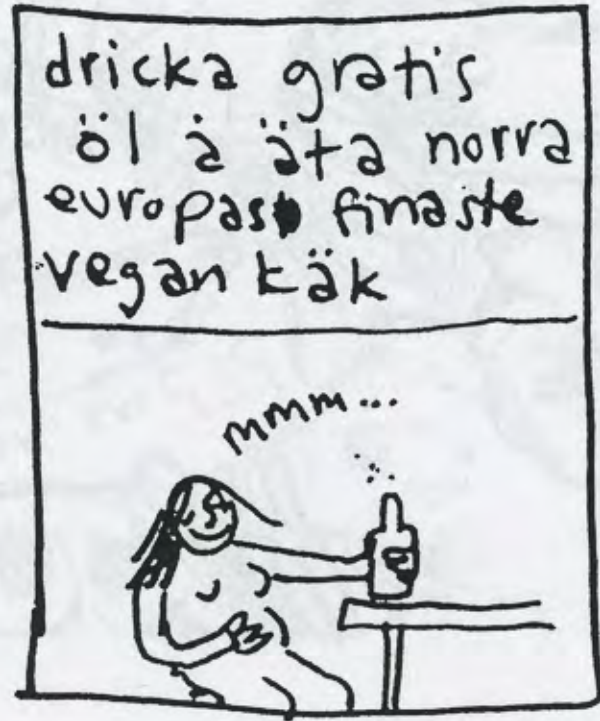 dricka gratis
öl å äta norra
europas finaste
vegan käk
mmm...